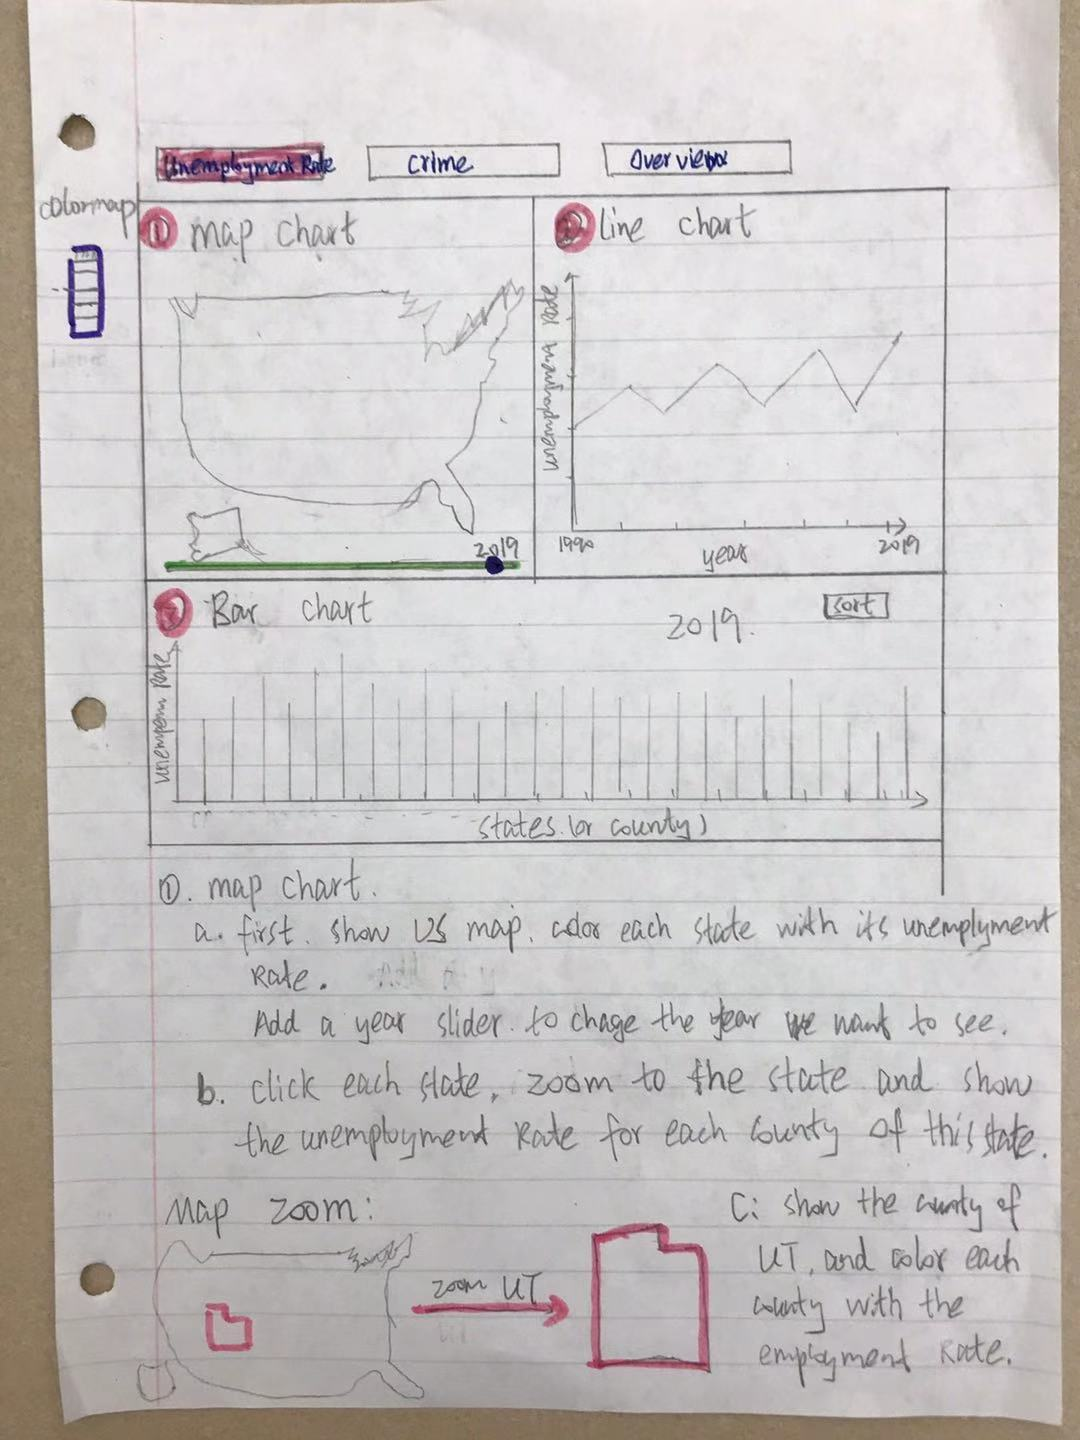 Unemployment Rate
crime
Overview
colormap
① map chart
② line chart
unemployment Rate
2019
1990
2019
year
③ Bar chart
2019.
sort
unemperm Rate
states (or county)
①. map chart.
a. first. show US map. color each state with its unemplyment
Rate.
Add a year slider. to chage the year we want to see.
b. click each state, zoom to the state and show
the unemployment Rate for each county of this state.
Map zoom:
zoom UT
C: show the county of
UT, and color each
county with the
employment Rate.